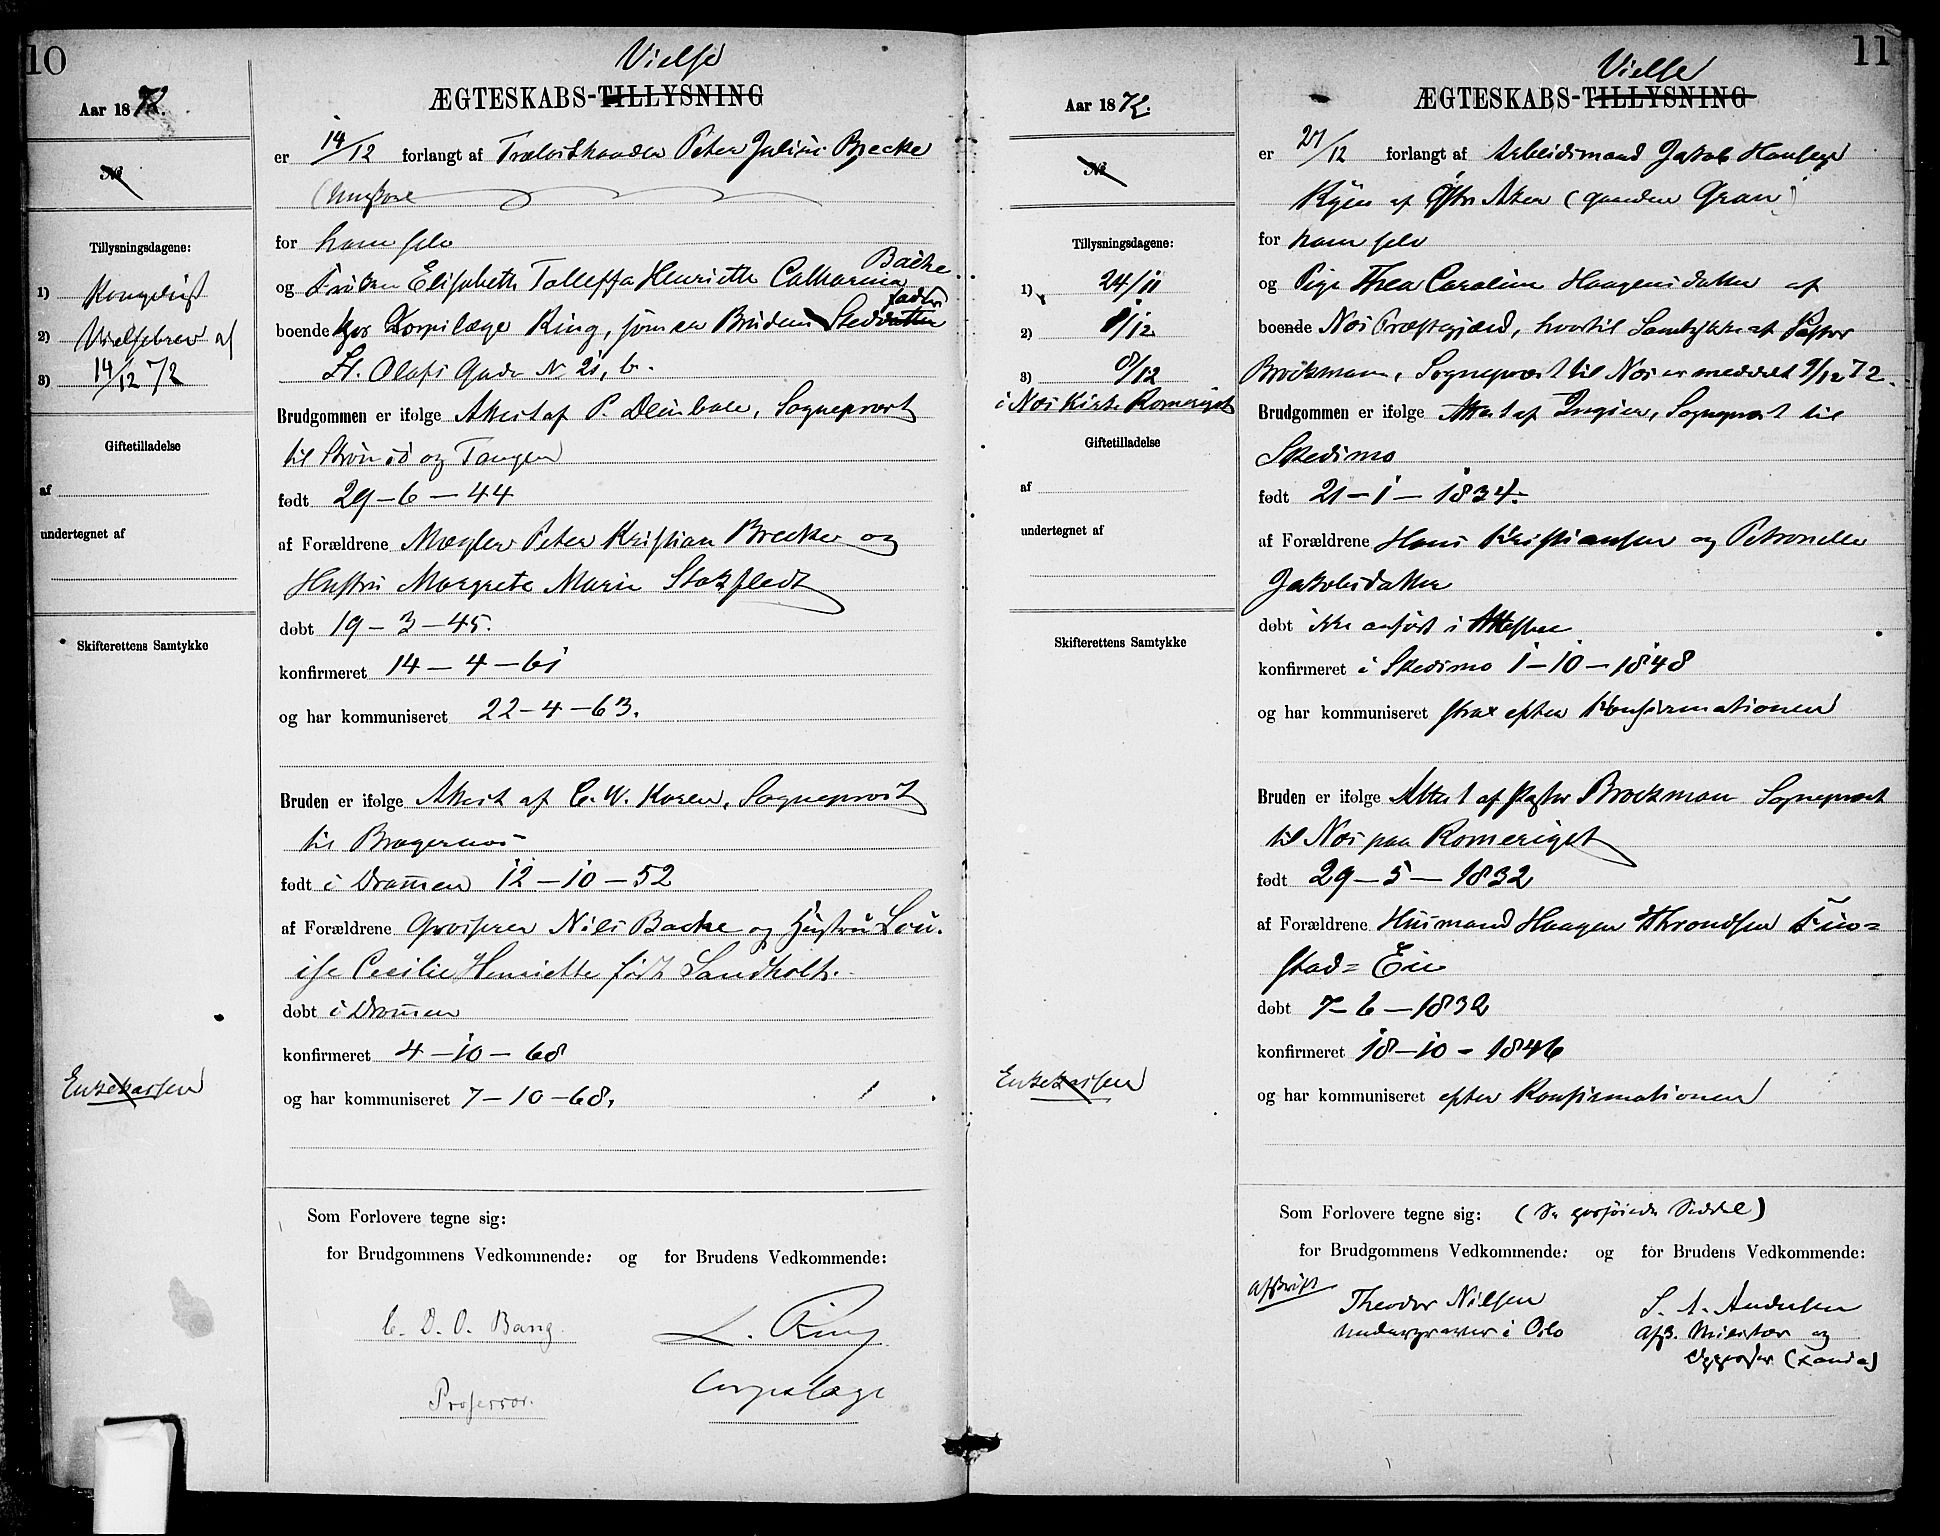 10
Aar 1872.
№
Tillysningsdagene:
1) Kongeligt
2) Vielsebrev af
3) 14/12 72
Giftetilladelse
af
undertegnet af
Skifterettens Samtykke
Enkekassen
Vielse
ÆGTESKABS-TILLYSNING
er 14/12 forlangt af Trælasthandler Peter Julius Brecke
Ungkarl
for ham selv
Backe
og Frøken Elisabeth Henriette Catharina
fader
boende hos Korpslæge Ring, som er Brudens Stedvatter
St. Olafs Gade N 21, b.
Brudgommen er ifølge Attest af P. Sognepræst
til Strømsø og Tangen
født 29-6-44
af Forældrene Mægler Peter Kristian Brecke og
Hustru Margrete Marie Stokfledt
døbt 19-3-45.
konfirmeret 14-4-61
og har kommuniseret 22-4-63.
Bruden er ifølge Attest af C. W. Koren, Sognepræst
til Bragernes
født i Drammen 12-10-52
af Forældrene Grosserer Nils Backe og Hustru Lou-
ise Cecilie Henriette født Sandholt.
døbt i Drammen
konfirmeret 4-10-68
og har kommuniseret 7-10-68.
Som Forlovere tegne sig:
for Brudgommens Vedkommende: og for Brudens Vedkommende:
C. D. O. Bang L. Ring
Professor. Corpslæge
11
Aar 1872.
№
Tillysningsdagene:
1) 24/11
2) 1/12
3) 8/12
i Næs Kirke Romeriget
Giftetilladelse
af
undertegnet af
Skifterettens Samtykke
Enkekassen
Vielse
ÆGTESKABS-TILLYSNING
er 27/12 forlangt af Arbeidsmand Jakob Hansen
af Østre Aker (Gran)
for ham selv
og Pige Thea Caroline Haagensdatter af
boende Næs Præstegjæld, hvortil Samtykke af Pastor
Brockmann, Sognepræst til Næs er meddelt 9/12 72.
Brudgommen er ifølge Attest af Ingier, Sognepræst til
Skedsmo
født 21-1-1834.
af Forældrene Hans Kristiansen og Petronelle
Jakobsdatter
døbt ikke anført i Attesten
konfirmeret i Skedsmo 1-10-1848
og har kommuniseret strax efter Konfirmationen
Bruden er ifølge Attest af Pastor Brockman Sognepræst
til Næs paa Romeriget
født 29-5-1832
af Forældrene Husmand Haagen Throndsen
stad= Eie
døbt 7-6-1832
konfirmeret 18-10-1846
og har kommuniseret efter Konfirmationen
Som Forlovere tegne sig: (Se Seddel)
for Brudgommens Vedkommende: og for Brudens Vedkommende:
Afskrift
Theodor Nilsen S. A. Andersen
Undergraver i Oslo Afsk. Militær og